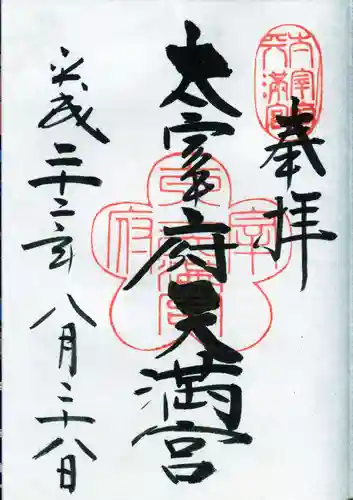 奉拝
太宰府天満宮
平成二十二年八月二十八日